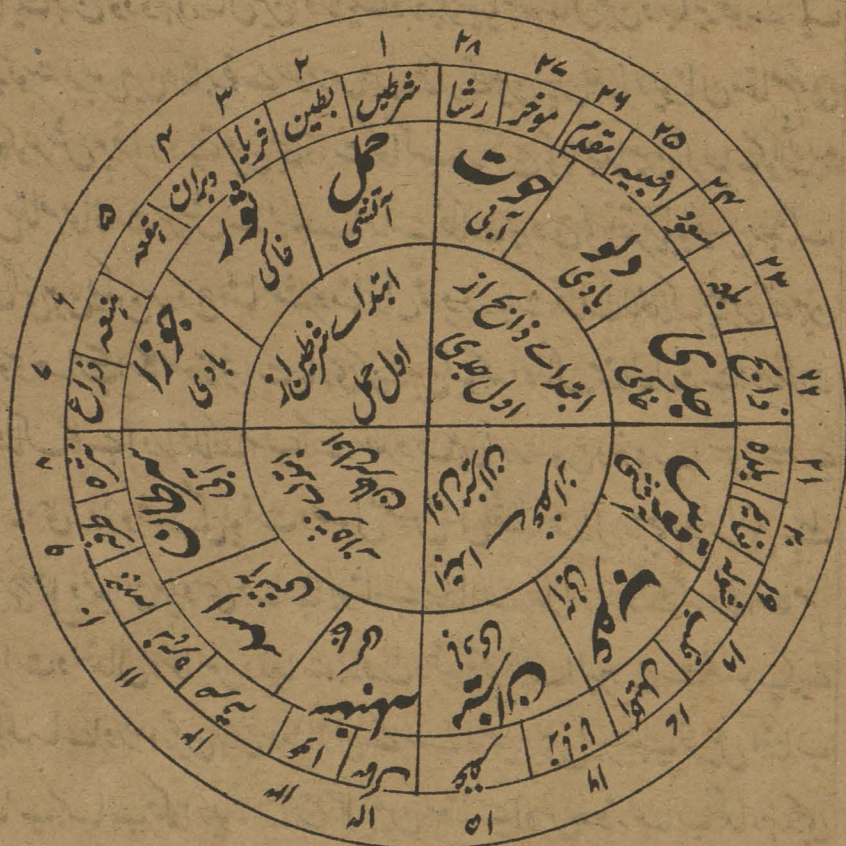 ۱
۲
۳
۴
۵
۶
۷
۸
۹
۱۰
۱۱
۱۲
۱۳
۱۴
۱۵
۱۶
۱۹
۲۰
۲۱
۲۲
۲۳
۲۴
۲۵
۲۶
۲۷
۲۸
شرطین
بطین
ثریا
دبران
ہقعہ
ہنعہ
ذراع
نثرہ
طرفہ
صرفہ
عوا
سماک
غفر
اکلیل
قلب
شولہ
نعائم
بلدہ
ذابح
بلعہ
سعود
اخبیہ
مقدم
موخر
رشا
حمل
آتشی
ثور
خاکی
جوزا
بادی
سرطان
آبی
اسد
آتشی
سنبلہ
خاکی
میزان
بادی
عقرب
آبی
قوس
آتشی
جدی
خاکی
دلو
بادی
حوت
آبی
ابتداے شرطین از
اول حمل
ابتداے نثرہ از
اول سرطان
ابتداے غفر از
اول میزان
ابتداے ذابح از
اول جدی